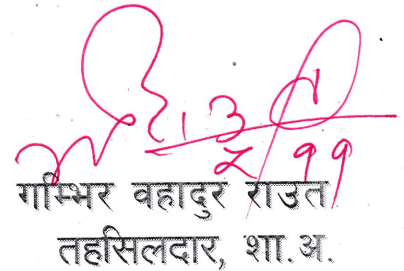 गम्भिर वहादुर राउत
तहसिलदार, शा.अ.